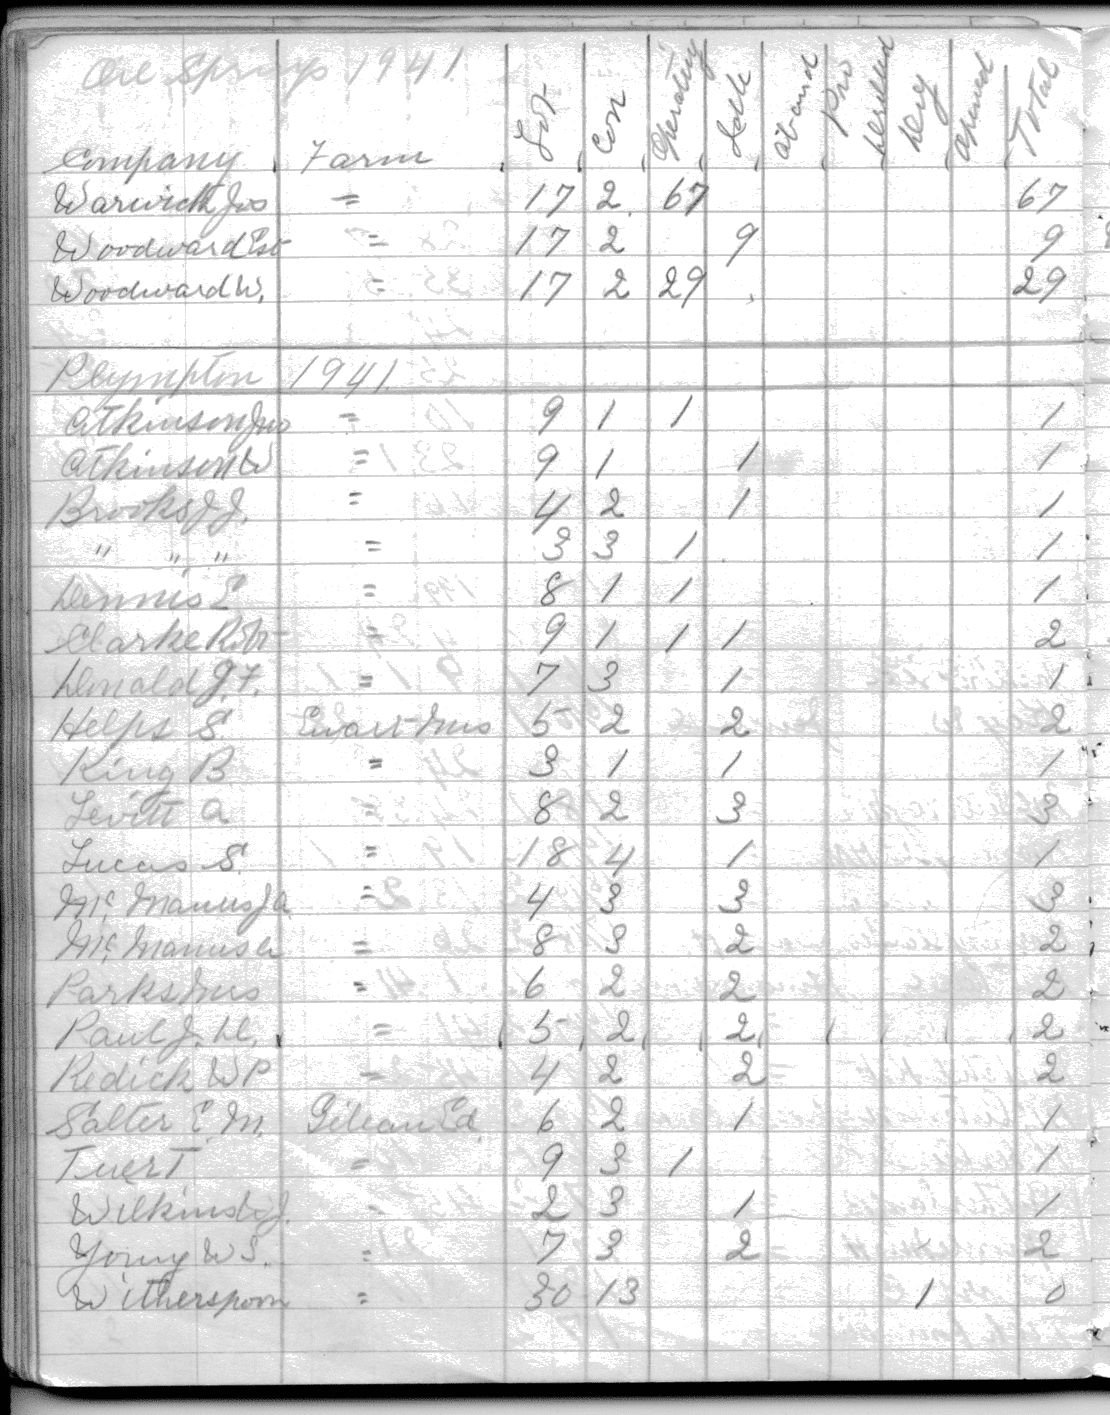 Oil Springs 1941
Company Farm Lot Con Operating Idle aband Pro Drilled Dry Opened Total
Warwick Jos = 17 2 67 67
Woodward Est = 17 2 9 9
Woodward W. = 17 2 29 29
Plympton 1941
Atkinson Jno = 9 1 1 1
Atkinson W = 9 1 1 1
Brooks J.J. = 4 2 1 1
" " " = 3 3 1 1
Dennis E = 8 1 1 1
Clarke Robt = 9 1 1 1 2
Donald J.F. = 7 3 1 1
Helps S. Ewart Jno 5 2 2 2
King B = 3 1 1 1
Levitt A = 8 2 3 3
Lucas S. = 18 4 1 1
Mc Manus J A = 4 3 3 3
Mc Manus = 8 3 2 2
Parks Jno = 6 2 2 2
Paul J. H. = 5 2 2 2
Redick W P = 4 2 2 2
Salter E. M. Ed 6 2 1 1
T = 9 3 1 1
J. = 2 3 1 1
Young W S. = 7 3 2 2
Witherspoon = 30 13 1 0